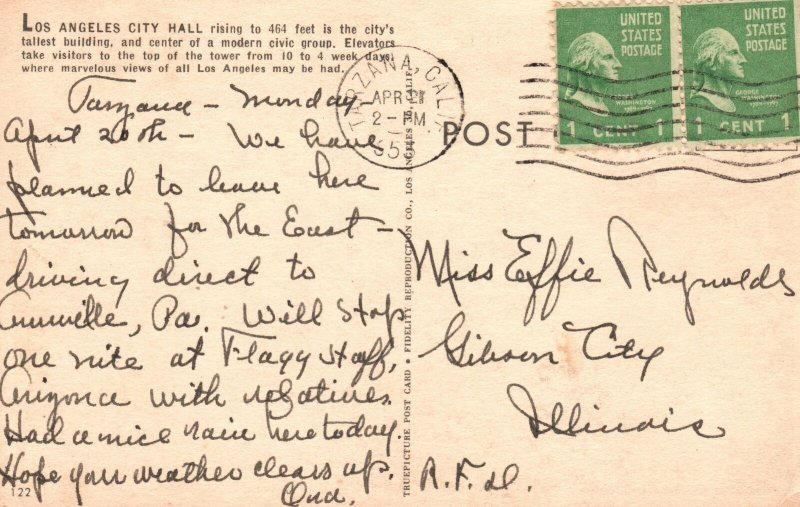 LOS ANGELES CITY HALL rising to 464 feet is the city's
tallest building, and center of a modern civic group. Elevators
take visitors to the top of the tower from 10 to 4 week days,
where marvelous views of all Los Angeles may be had.
Tarzana - Monday
April 20th - We have
planned to leave here
tomorrow for the East -
driving direct to
Annville, Pa. Will stop
one nite at Flagg Staff,
Arizona with relatives.
Had a nice rain here today.
Hope your weather clears up.
122
TARZANA, CALIF.
APR 21
2 - PM
TRUEPICTURE POST CARD • FIDELITY REPRODUCTION CO., LOS ANGELES 36, CALIF.
POST
UNITED
STATES
POSTAGE
WASHINGTON
1 CENT 1
UNITED
STATES
POSTAGE
GEORGE
WASHINGTON
1 CENT 1
Miss Effie Reynolds
Gibson City
Illinois
R.F.D.